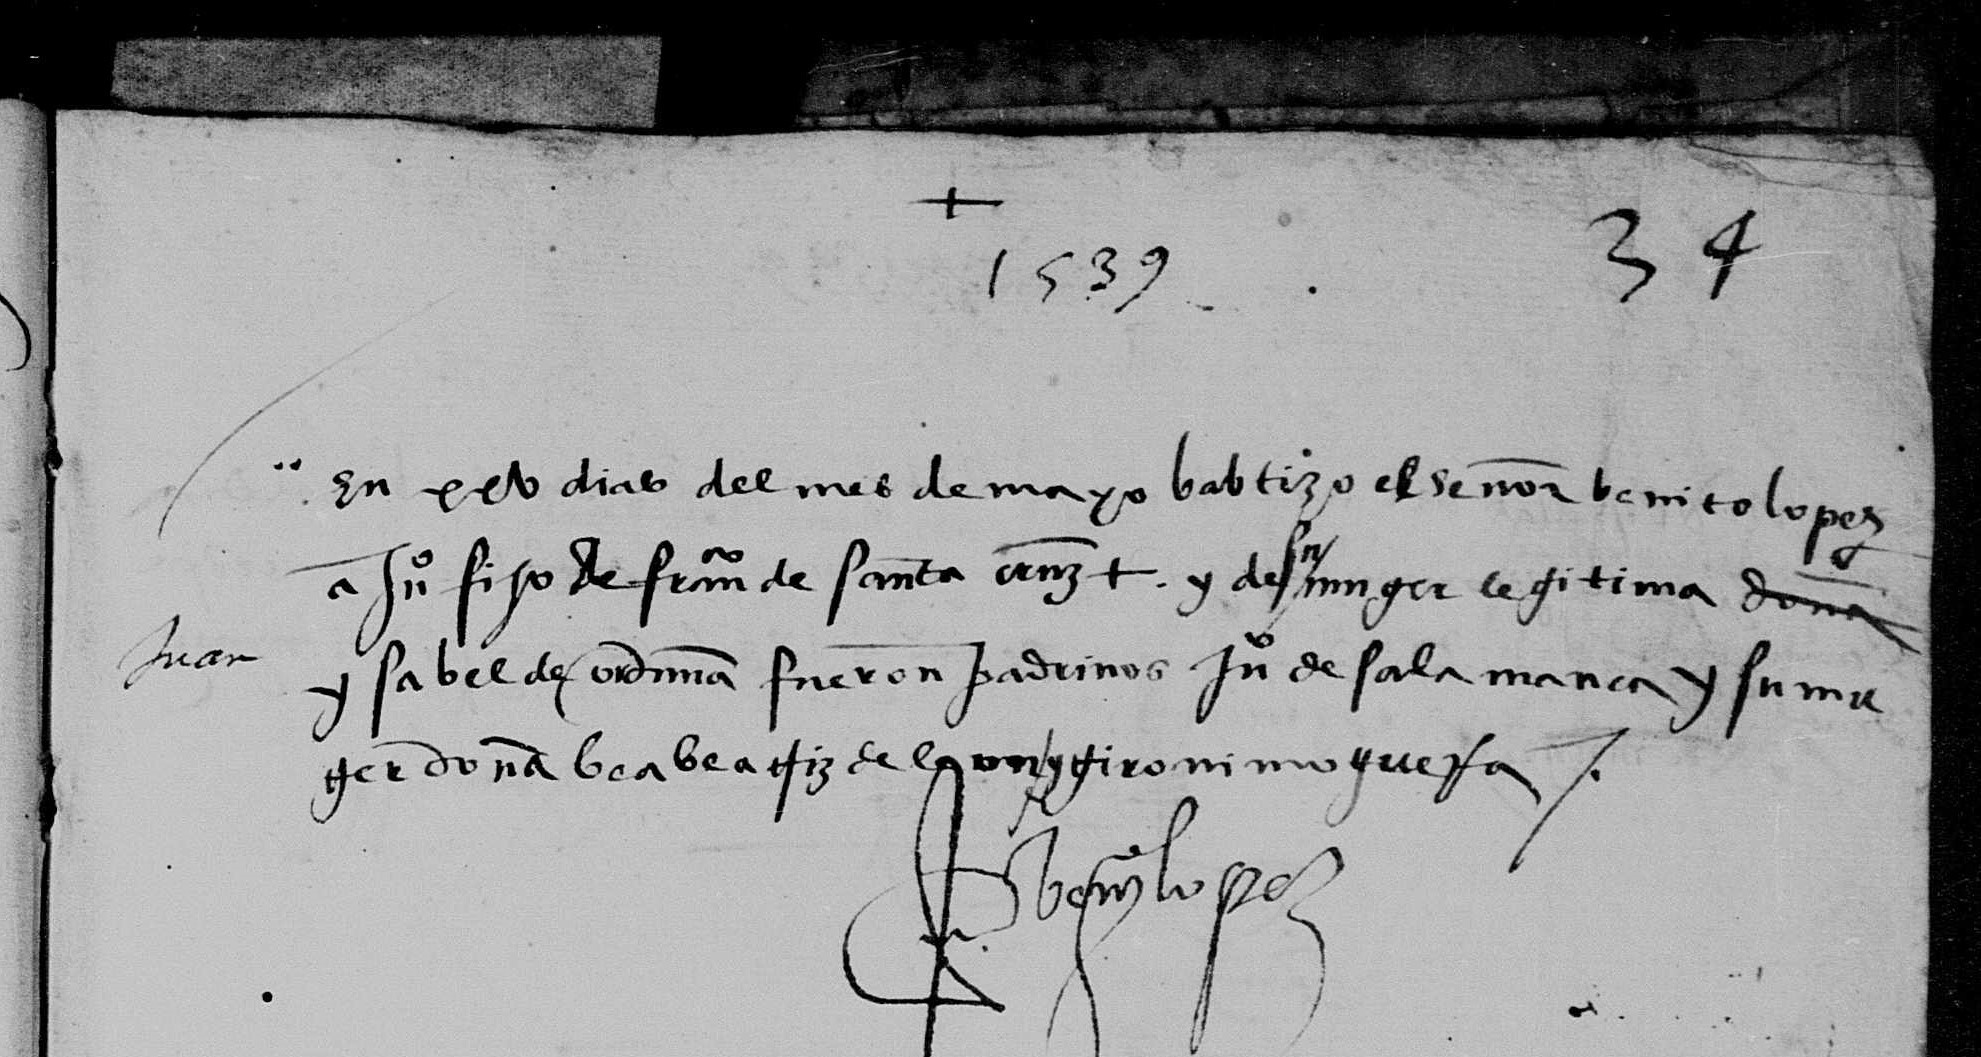 +
1539
34
En xxv dias del mes de mayo babtizo el señor benito lopez
a Juº fijo de franco de santa cruz +. y de su muger legitima doña
Juan
ysabel de orduña fueron padrinos Juº de salamanca y su mu
ger doña bea beatriz de leon y gironimo
lopez